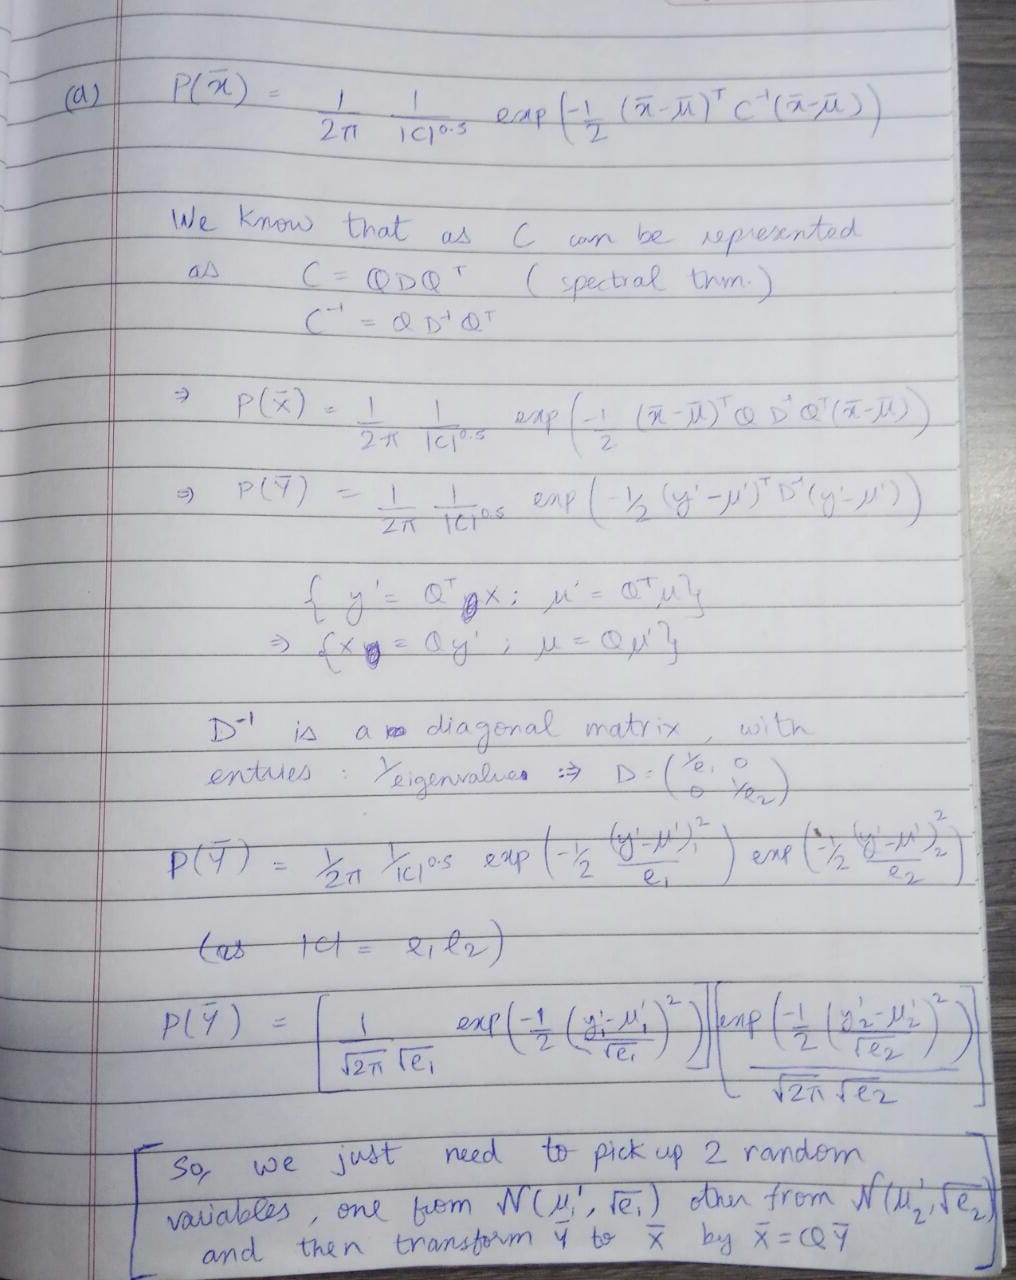 (a) P(x̄) = 1/2π 1/|C|^0.5 exp(-1/2 (x̄-μ̄)ᵀ C⁻¹(x̄-μ̄))
We know that as C can be represented
as C = QDQᵀ (spectral thm.)
C⁻¹ = Q D⁻¹ Qᵀ
⇒ P(x̄) = 1/2π 1/|C|^0.5 exp(-1/2 (x̄-μ̄)ᵀ Q D⁻¹ Qᵀ(x̄-μ̄))
⇒ P(Ȳ) = 1/2π 1/|C|^0.5 exp(-1/2 (y'-μ')ᵀ D⁻¹(y'-μ'))
{ y' = Qᵀ x ; μ' = Qᵀμ }
⇒ { x = Qy' ; μ = Qμ' }
D⁻¹ is a diagonal matrix, with
entries : 1/eigenvalues ⇒ D = (1/e₁ 0
0 1/e₂)
P(Ȳ) = 1/2π 1/|C|^0.5 exp(-1/2 (y'-μ')₁²/e₁) exp(-1/2 (y'-μ')₂²/e₂)
(as |C| = e₁e₂)
P(Ȳ) = [1/√2π √e₁ exp(-1/2 (y₁'-μ₁'/√e₁)²)] [exp(-1/2 (y₂'-μ₂'/√e₂)²)/√2π √e₂]
So, we just need to pick up 2 random
variables, one from N(μ₁', √e₁) other from N(μ₂', √e₂)
and then transform ȳ to x̄ by x̄ = Qȳ